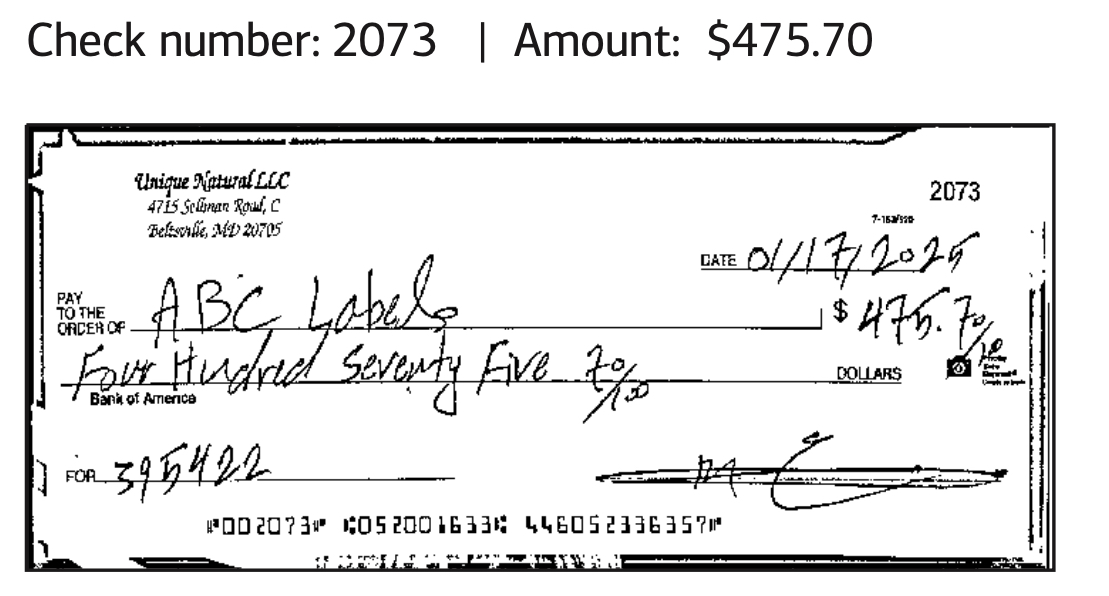 Check number: 2073 | Amount: $475.70
Unique Natural LLC
4715 Sellman Road, C
Beltsville, MD 20705
2073
7-163/520
DATE 01/17/2025
PAY
TO THE
ORDER OF ABC Labels $ 475.70/100
Four Hundred Seventy Five 70/100 DOLLARS
Bank of America
FOR 395422
⑈002073⑈ ⑆052001633⑆ 446052336357⑈